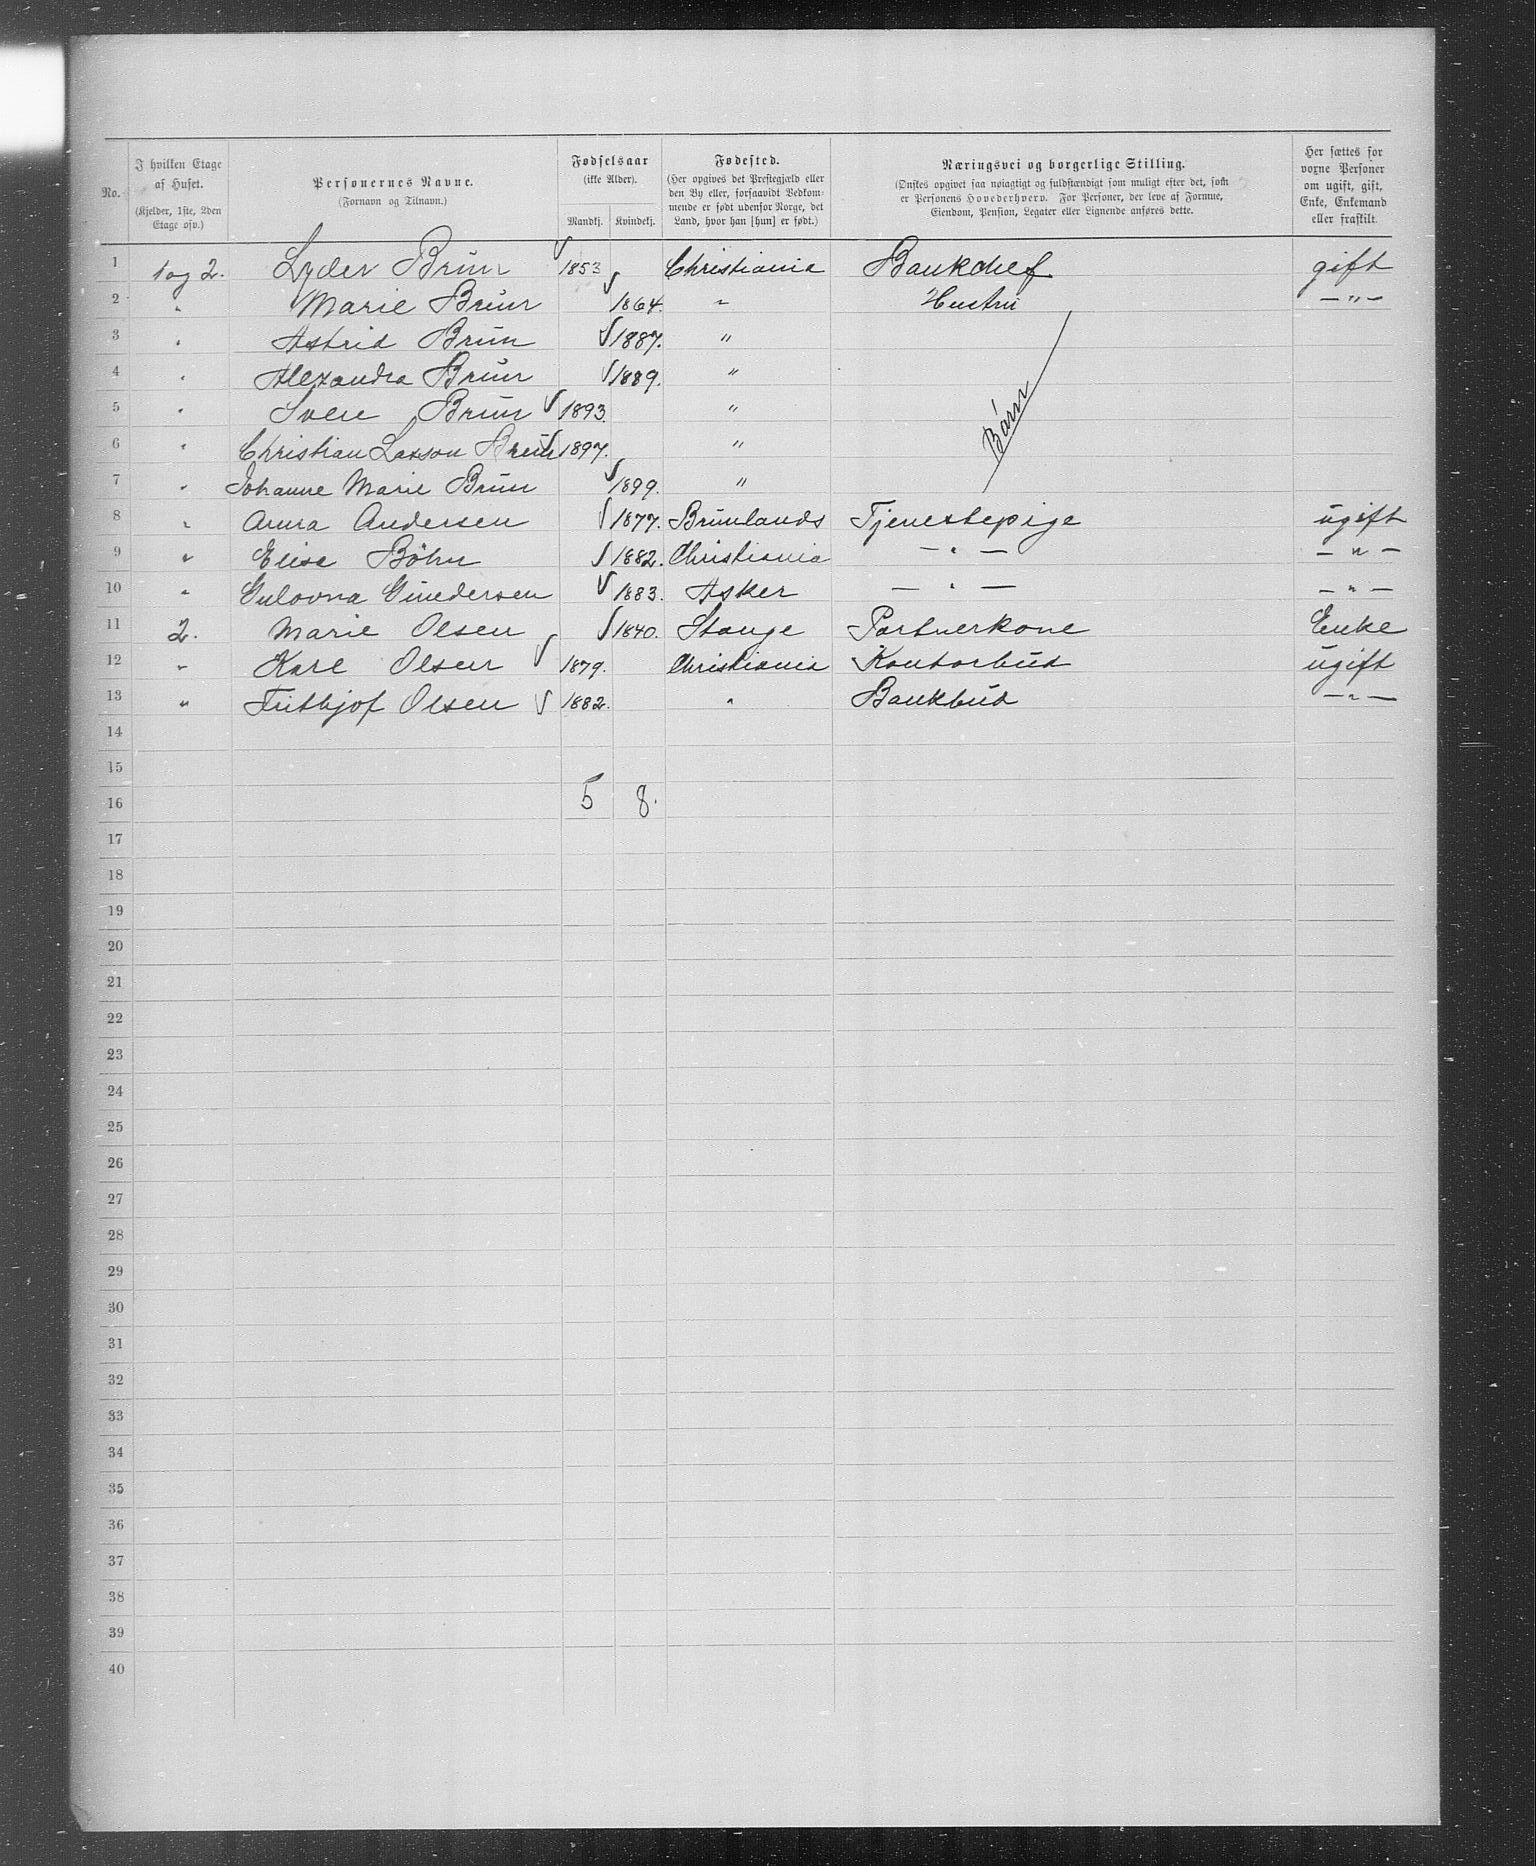 No.
I hvilken Etage af Huset.
(Kjelder, 1ste, 2den Etage osv.)
Personernes Navne.
(Fornavn og Tilnavn.)
Fødselsaar
(ikke Alder).
Mandkj. Kvindekj.
Fødested.
(Her opgives det Prestegjæld eller
den By eller, forsaavidt Vedkom-
mende er født udenfor Norge, det
Land, hvor han [hun] er født.)
Næringsvei og borgerlige Stilling.
(Ønskes opgivet saa nøiagtigt og fuldstændigt som muligt efter det, som
er Personens Hovederhverv. For Personer, der leve af Formue,
Eiendom, Pension, Legater eller Lignende anføres dette.
Her sættes for
voxne Personer
om ugift, gift,
Enke, Enkemand
eller fraskilt.
1 1 og 2. Lyder Brun 1853 Christiania Bankchef gift
2 " Marie Brun 1864. " Hustru — " —
3 " Astrid Brun 1887. "
4 " Alexandra Brun 1889. "
5 " Brun 1893. "
6 " Christian Brun 1897. "
7 " Johanne Marie Brun 1899. "
Børn
8 " Anna Andersen 1877. Brunlands Tjenestepige ugift
9 " Elise Böhn 1882. Christiania — " — — " —
10 " Gulovna Gundersen 1883. Asker — " — — " —
11 2. Marie Olsen 1840. Stange Portnerkone Enke
12 " Karl Olsen 1879. Christiania Kontorbud ugift
13 " Frithjof Olsen 1882. " Bankbud — " —
14
15
16 5 8.
17
18
19
20
21
22
23
24
25
26
27
28
29
30
31
32
33
34
35
36
37
38
39
40